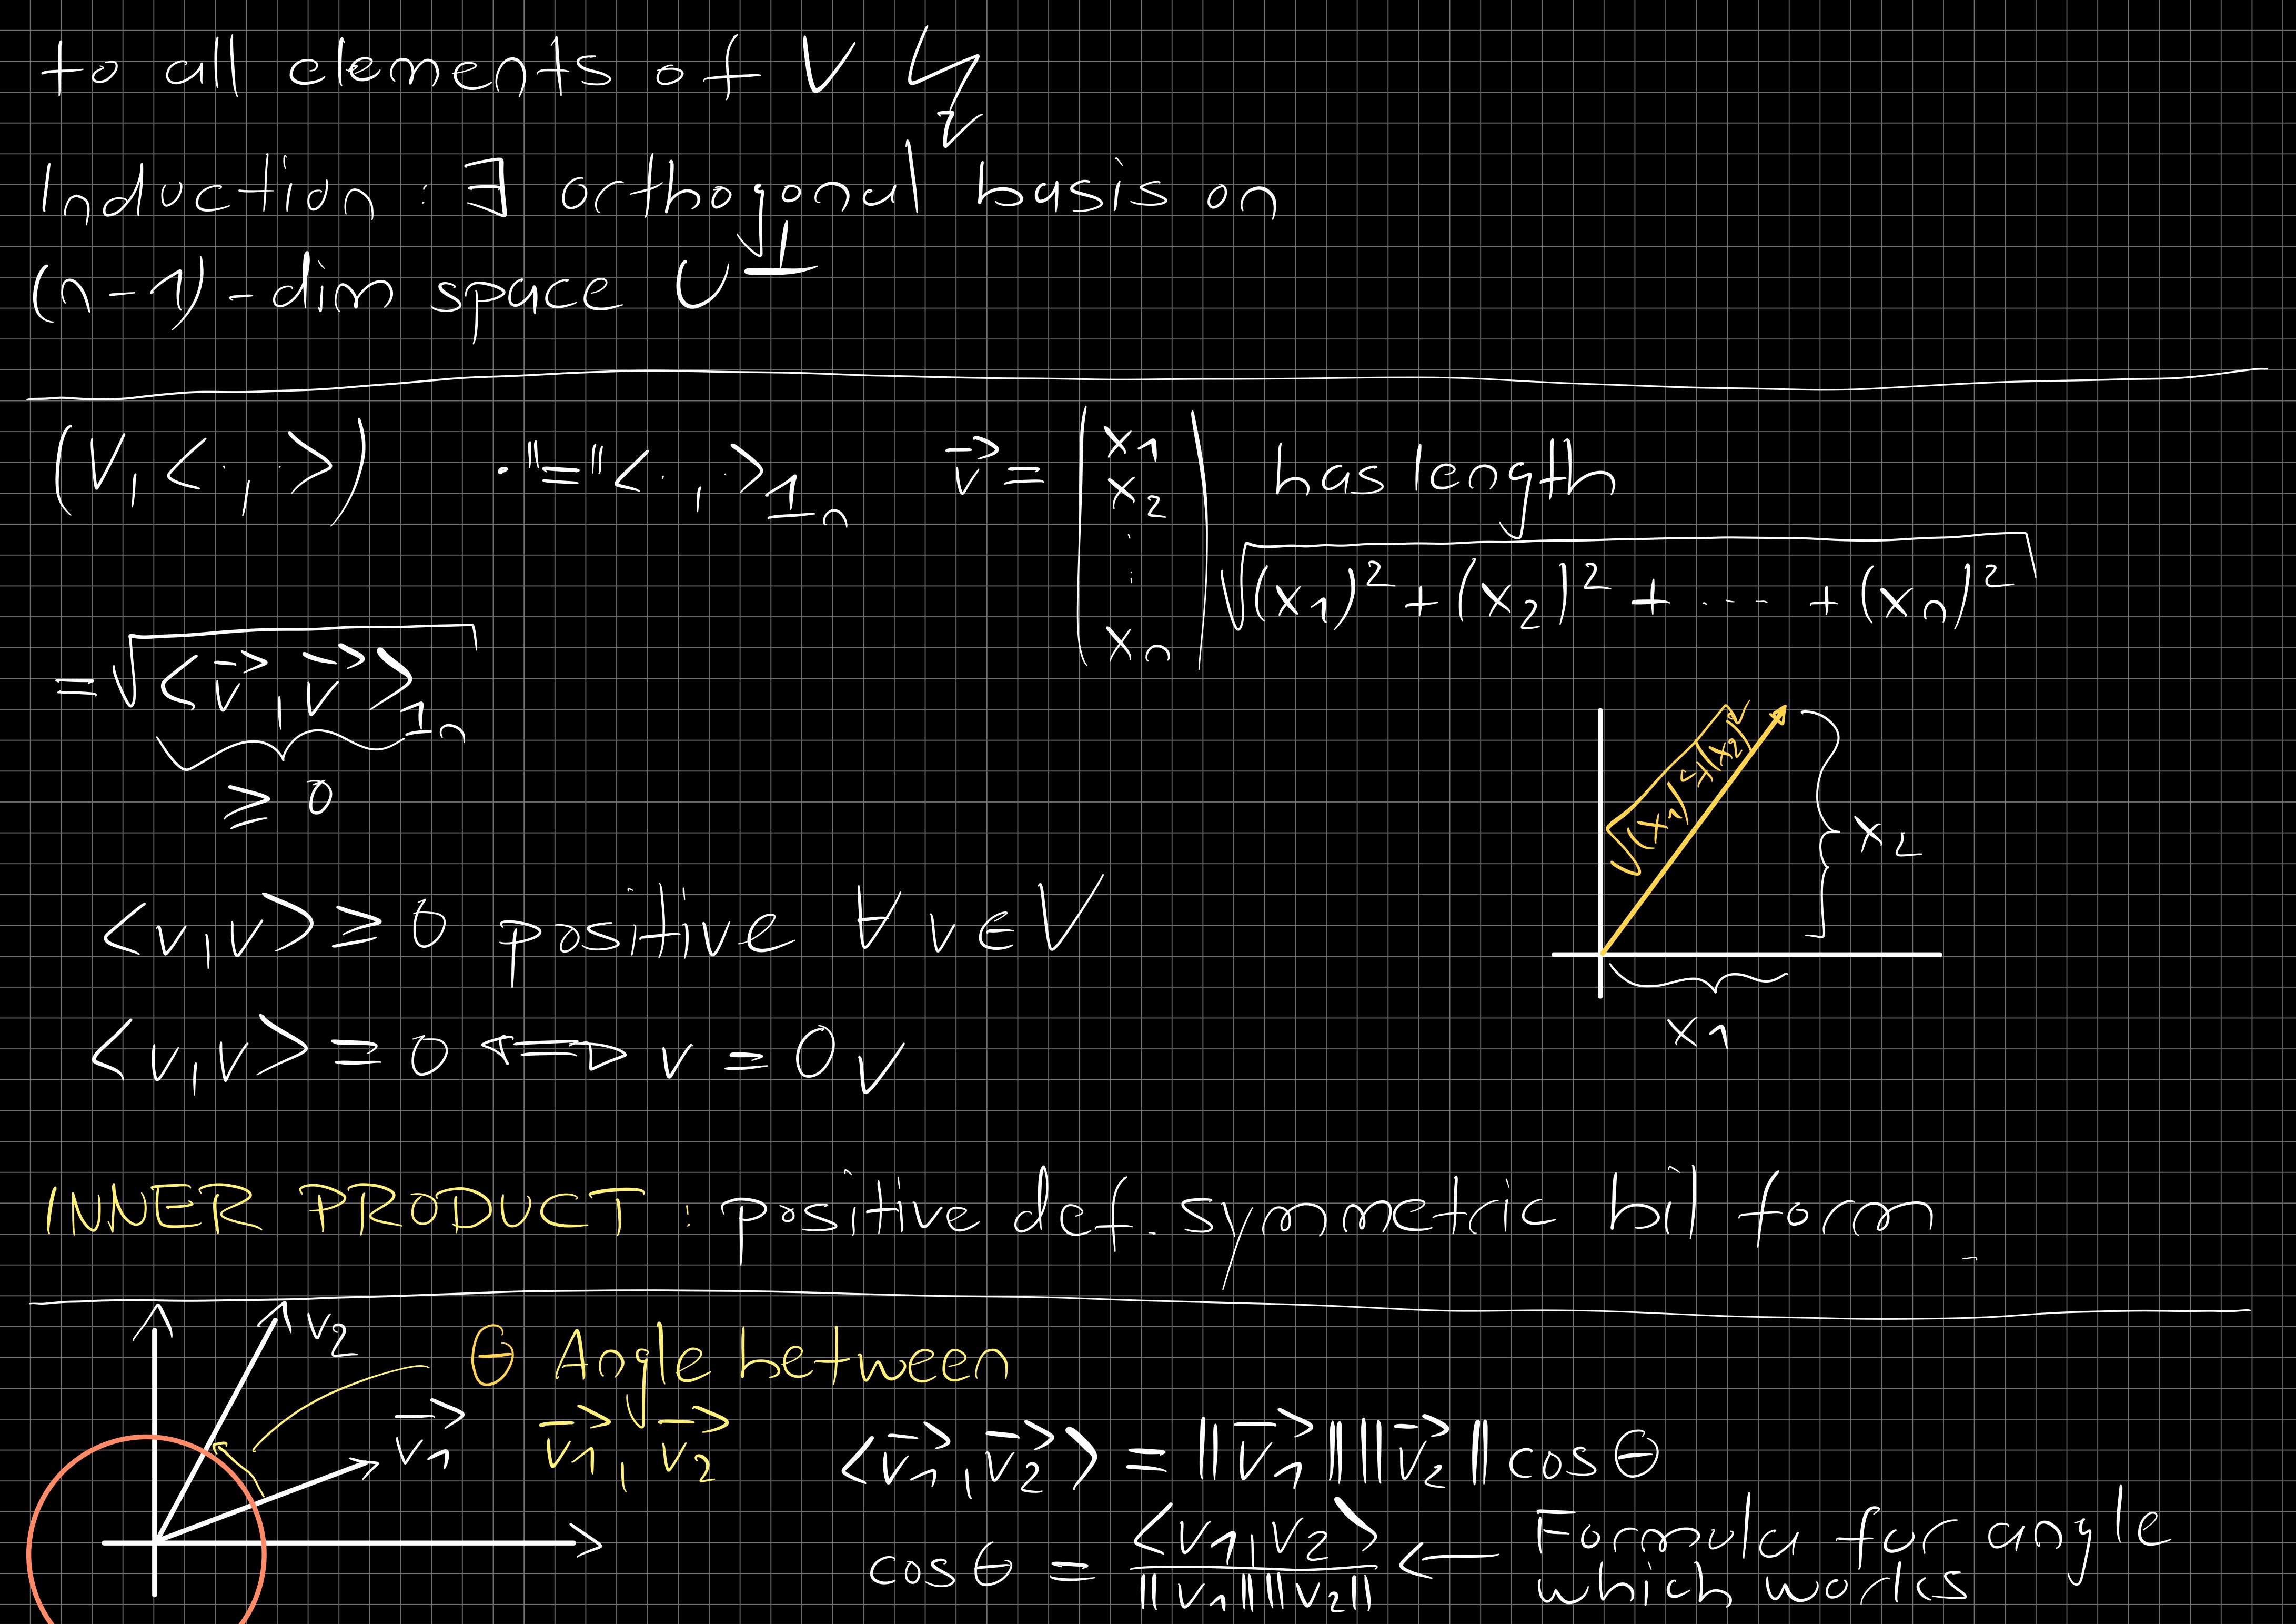 to all elements of V ↯
Induction : ∃ orthogonal basis on
(n-1)-dim space U⊥
(V, <·,·>) · "=" <·,·>1n v⃗ = (x1 x2 ⋮ xn) has length
√((x1)² + (x2)² + ---- + (xn)²)
= √<v⃗, v⃗>1n
≥ 0
√((x1)² + (x2)²
x2
x1
<v,v> ≥ 0 positive ∀ v ∈ V
<v,v> = 0 ⟺ v = 0V
INNER PRODUCT : positive def. symmetric bil form.
v2
θ Angle between
v⃗1, v⃗2
v⃗1
<v⃗1, v⃗2> = ||v⃗1|| ||v⃗2|| cos θ
cos θ = <v1, v2> / ||v1|| ||v2|| ← Formula for angle
which works